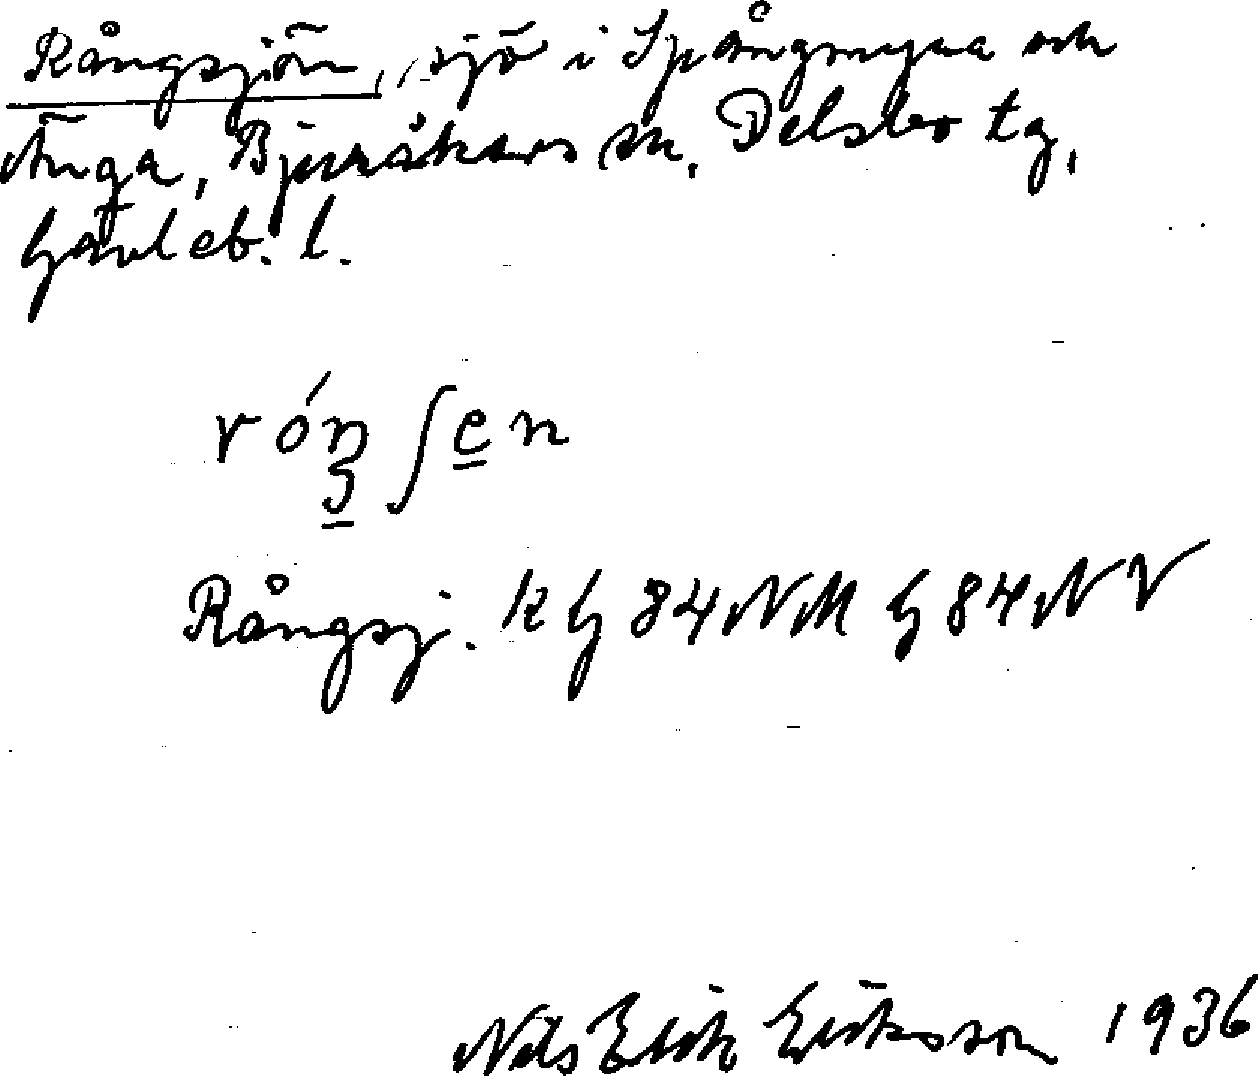 Rångsjön, sjö i Spångmyra och
Änga, Bjuråkers sn, Delsbo tg,
Gävleb. l.
Rångsj. k G 84 NM G 84 NV
Nils Erik Eriksson 1936